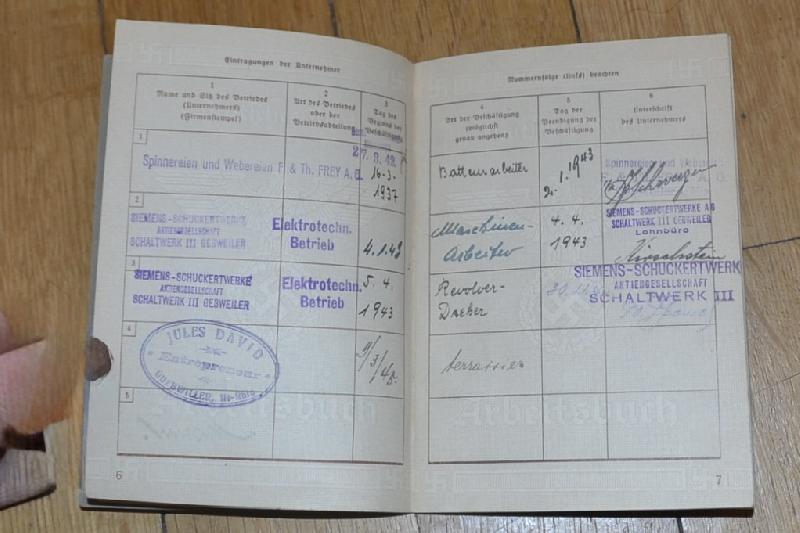 Eintragungen der Unternehmer
1
Name und Sitz des Betriebes
(Unternehmers)
(Firmenstempel)
2
Art des Betriebes
oder der
Betriebsabteilung
3
Tag des
Beginns der
Beschäftigung
1
Spinnereien und Webereien F. & Th. FREY A.G.
16-3-
1937
2
SIEMENS-SCHUCKERTWERKE
AKTIENGESELLSCHAFT
SCHALTWERK III GEBWEILER
Elektrotechn.
Betrieb
4.1.43
3
SIEMENS-SCHUCKERTWERKE
AKTIENGESELLSCHAFT
SCHALTWERK III GEBWEILER
Elektrotechn.
Betrieb
5. 4.
1943
4
JULES DAVID
Entrepreneur
5
Arbeitsbuch
6
Nummernfolge (links) beachten
4
Art der Beschäftigung
(möglichst
genau angeben)
5
Tag der
Beendigung der
Beschäftigung
6
Unterschrift
des Unternehmers
2.1.1943
Spinnereien und Weber
F. & Th. FREY A.G.
Maschinen-
Arbeiter
4. 4.
1943
SIEMENS-SCHUCKERTWERKE AG
SCHALTWERK III GEBWEILER
Lohnbüro
Revolver-
Dreher
SIEMENS-SCHUCKERTWERK
AKTIENGESELLSCHAFT
SCHALTWERK III
terrassier
Arbeitsbuch
7